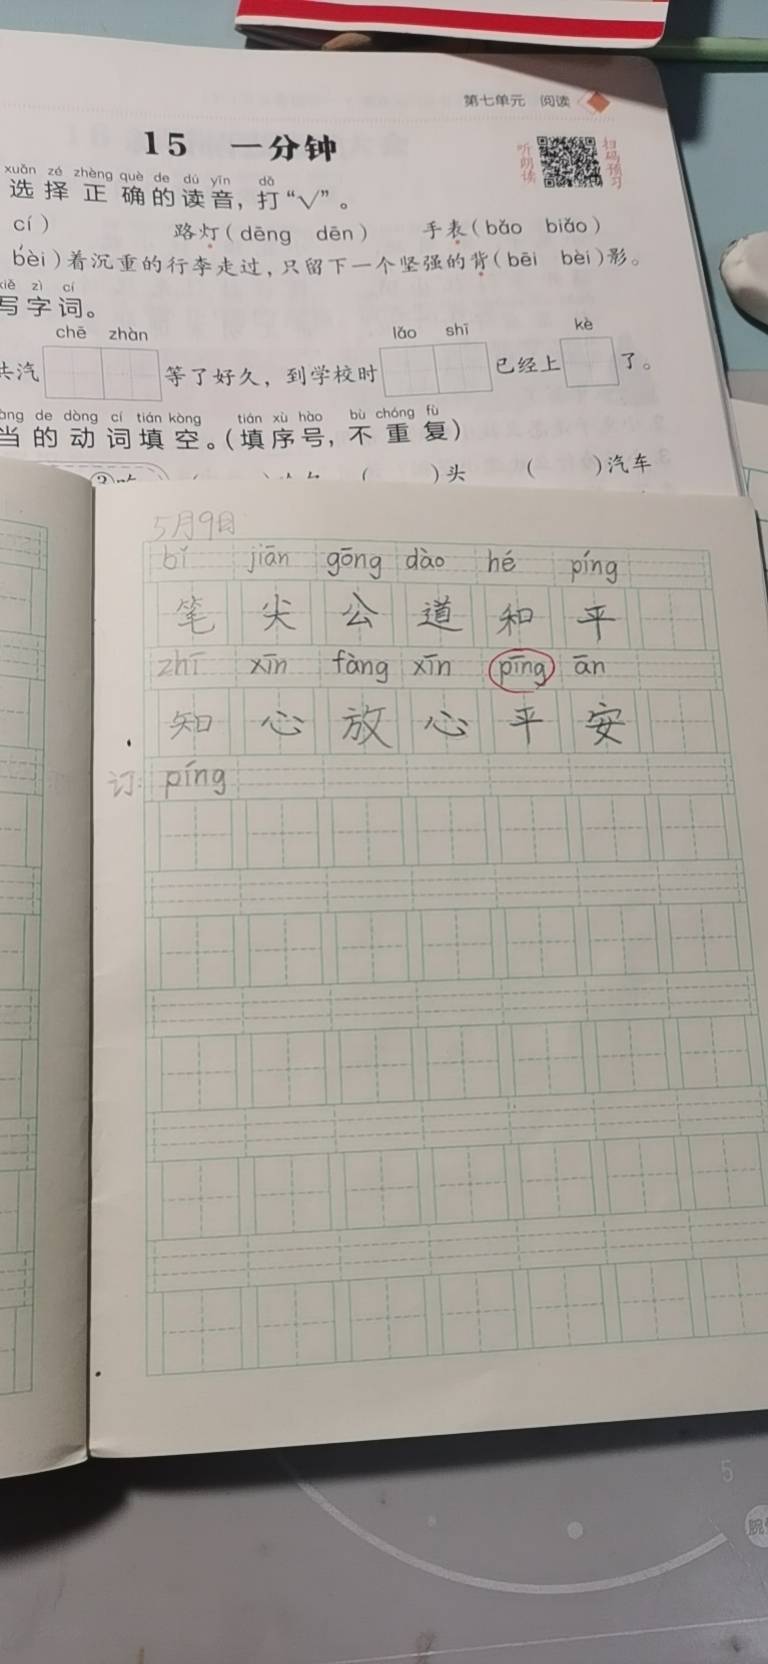 第七单元 阅读
15 一分钟
听朗读
扫码预习
xuǎn zé zhèng què de dú yīn dǎ
选择正确的读音，打“√”。
cí）
路灯（dēng dēn） 手表（bǎo biǎo）
bèi）着沉重的行李走过，只留下一个坚强的背（bēi bèi）影。
xiě zì cí
写字词。
chē zhàn lǎo shī kè
共汽 等了好久，到学校时 已经上 了。
de dòng cí tián kòng tián xù hào bù chóng fù
当的动词填空。（填序号，不重复）
（ ）头 （ ）汽车
5月9日
bǐ jiān gōng dào hé píng
笔尖公道和平
zhī xīn fàng xīn pīng ān
知心放心平安
订: píng
5